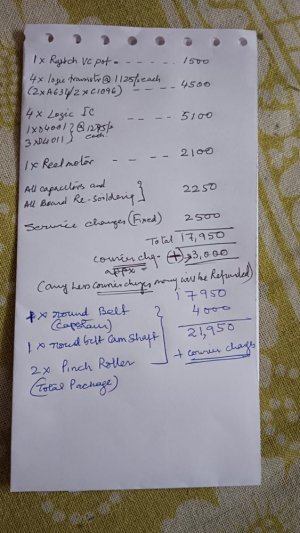 1 x Pitch VC pot - - - - - 1500
4 x logic transistor @ 1125/- each - - - - 4500
(2xA634/2xC1096)
4 x Logic IC - - - - 5100
1xD4001 } @ 1275/-
3xD4011 } each.
1 x Reel motor - - - - 2100
All capacitors and
All Board Re-soldering } 2250
Service charges (Fixed) 2500
Total 17,950
courier chg (+) 3,000
(any Less courier charges money will be Refunded)
17950
1 x round Belt 4000
(capstan) 21,950
1 x round belt Cam Shaft + courier charges
2 x Pinch Roller
(Total Package)